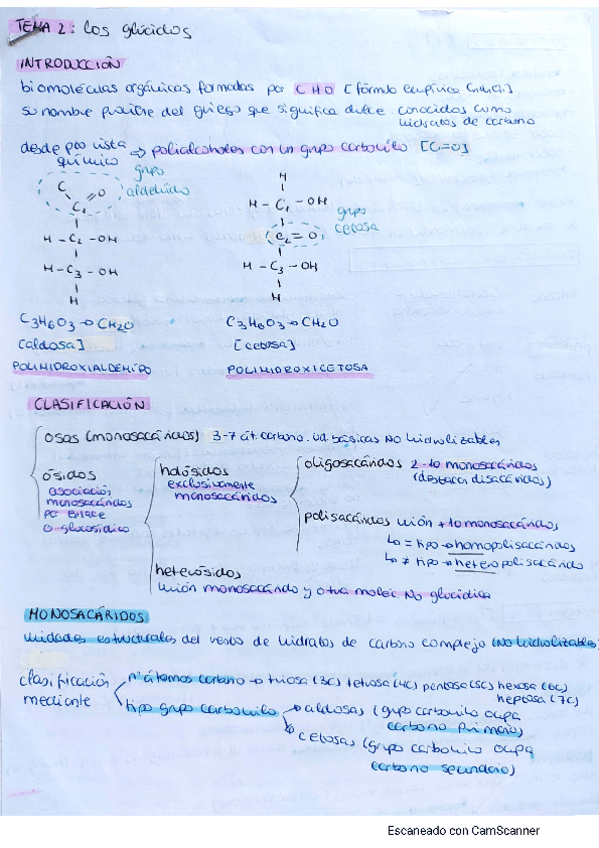 TEMA 2: Los glúcidos
INTRODUCCIÓN
biomoléculas orgánicas formadas por C H O [fórmula empírica
su nombre proviene del griego que significa dulce. conocidos como
hidratos de carbono
desde pto vista
químico → polialcoholes con un grupo carbonilo [C=O]
grupo
aldehído
C
O
C1
H - C2 - OH
H - C3 - OH
H
H
H - C1 - OH
grupo
cetosa
C2 = O
H - C3 - OH
H
C3H6O3 → CH2O
[aldosa]
POLIHIDROXIALDEHÍDO
C3H6O3 → CH2O
[cetosa]
POLIHIDROXICETOSA
CLASIFICACIÓN
osas (monosacáridos) 3-7 át. carbono. ud. básicas NO hidrolizables
ósidos
asociación
monosacáridos
por enlace
O-glucosídico
holósidos
exclusivamente
monosacáridos
oligosacáridos 2-10 monosacáridos
(destacan disacáridos)
polisacáridos unión + 10 monosacáridos
↳ = tipo → homopolisacáridos
↳ ≠ tipo → heteropolisacárido
heterósidos
unión monosacárido y otra molec. No glucídica
MONOSACÁRIDOS
unidades estructurales del resto de hidratos de carbono complejo (No hidrolizables)
clasificación
mediante
nº átomos carbono → triosa (3C) tetrosa (4C) pentosa (5C) hexosa (6C)
heptosa (7C)
tipo grupo carbonilo → aldosas (grupo carbonilo ocupa
carbono primario)
→ cetosas (grupo carbonilo ocupa
carbono secundario)
Escaneado con CamScanner